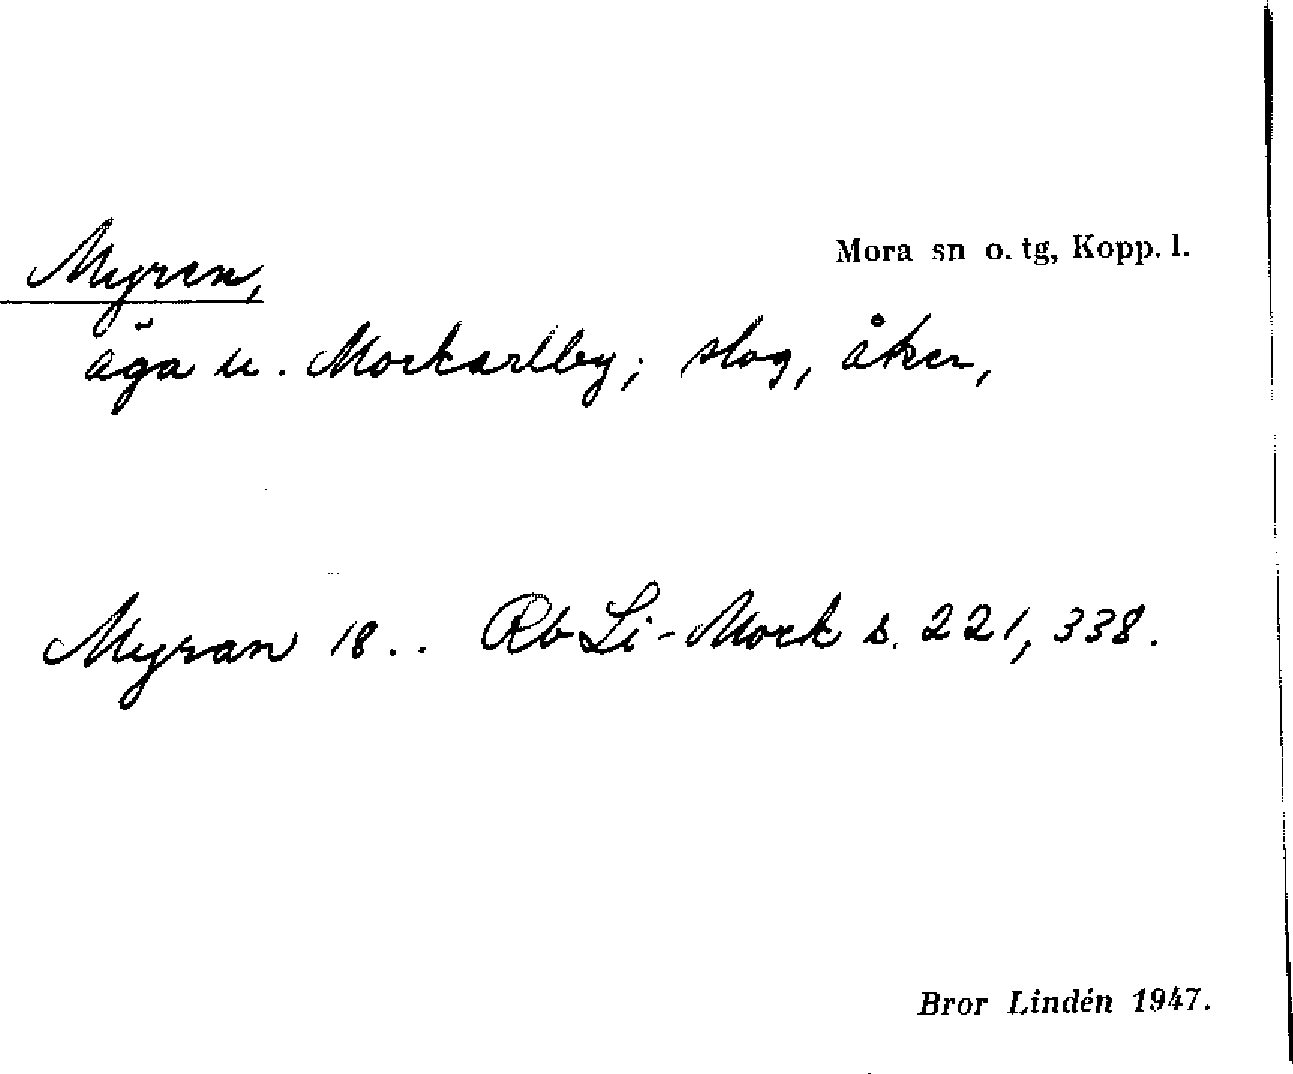 Mora sn o. tg, Kopp. l.
Myren,
äga u. Mockarlby; slog, åker,
Myran 18.. Rb Li-Mock s. 221, 338.
Bror Lindén 1947.